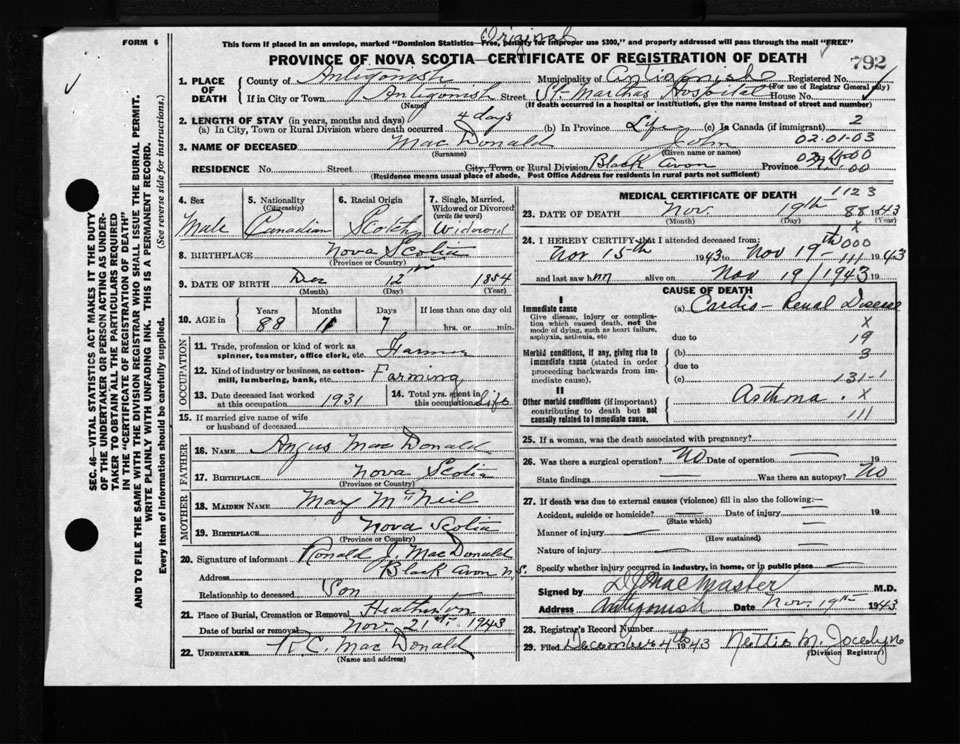 Original
FORM 6
This form if placed in an envelope, marked "Dominion Statistics—Free, penalty for improper use $300," and properly addressed will pass through the mail "FREE"
PROVINCE OF NOVA SCOTIA—CERTIFICATE OF REGISTRATION OF DEATH
792
1. PLACE OF DEATH County of Antigonish Municipality of Antigonish Registered No.
(For use of Registrar General only)
If in City or Town Antigonish Street St-Marthas Hospital House No.
(Name) (If death occurred in a hospital or institution, give the name instead of street and number)
2. LENGTH OF STAY (in years, months and days)
(a) In City, Town or Rural Division where death occurred 4 days (b) In Province (c) In Canada (if immigrant) 2
3. NAME OF DECEASED Mac Donald John 02-01-03
(Surname) (Given name or names)
RESIDENCE No. Street City, Town or Rural Division Black Avon Province
(Residence means usual place of abode. Post Office Address for residents in rural parts not sufficient)
4. Sex Male
5. Nationality (Citizenship) Canadian
6. Racial Origin Scotch
7. Single, Married, Widowed or Divorced (write the word) Widowed
8. BIRTHPLACE Nova Scotia
(Province or Country)
9. DATE OF BIRTH Dec 12th 1854
(Month) (Day) (Year)
10. AGE in Years Months Days If less than one day old
88 11 7 hrs. or min.
OCCUPATION
11. Trade, profession or kind of work as spinner, teamster, office clerk, etc. Farmer
12. Kind of industry or business, as cotton-mill, lumbering, bank, etc. Farming
13. Date deceased last worked at this occupation 1931
14. Total yrs. spent in this occupation Life
15. If married give name of wife or husband of deceased
FATHER
16. NAME Angus Mac Donald
17. BIRTHPLACE Nova Scotia
(Province or Country)
MOTHER
18. MAIDEN NAME Mary McNeil
19. BIRTHPLACE Nova Scotia
(Province or Country)
20. Signature of informant Ronald J. MacDonald
Address Black Avon N.S.
Relationship to deceased Son
21. Place of Burial, Cremation or Removal Heatherton
Date of burial or removal Nov. 21st. 1943
22. UNDERTAKER R. C. Mac Donald
(Name and address)
MEDICAL CERTIFICATE OF DEATH
1123
23. DATE OF DEATH Nov. 19th 88 1943
(Month) (Day)
24. I HEREBY CERTIFY that I attended deceased from:
Nov 15th 1943 to Nov 19th 1943
and last saw him alive on Nov 19/1943 19
CAUSE OF DEATH
I
Immediate cause (a) Cardio-Renal Disease
Give disease, injury or complication which caused death, not the mode of dying, such as heart failure, asphyxia, asthenia, etc
due to
x
19
3
Morbid conditions, if any, giving rise to immediate cause (stated in order proceeding backwards from immediate cause).
(b)
due to
(c) 131-1
II
Other morbid conditions (if important) contributing to death but not causally related to immediate cause. Asthma x
111
25. If a woman, was the death associated with pregnancy?
26. Was there a surgical operation? No Date of operation 19
State findings Was there an autopsy? No
27. If death was due to external causes (violence) fill in also the following:—
Accident, suicide or homicide? Date of injury 19
(State which)
Manner of injury
(How sustained)
Nature of injury
Specify whether injury occurred in industry, in home, or in public place
Signed by D J MacMaster M.D.
Address Antigonish Date Nov. 19th 1943
28. Registrar's Record Number
29. Filed December 4th 1943 Nettie M. Jocelyn
(Division Registrar)
SEC. 46—VITAL STATISTICS ACT MAKES IT THE DUTY
OF THE UNDERTAKER OR PERSON ACTING AS UNDERTAKER TO OBTAIN ALL THE PARTICULARS REQUIRED
IN THE "CERTIFICATE OF REGISTRATION OF DEATH"
AND TO FILE THE SAME WITH THE DIVISION REGISTRAR WHO SHALL ISSUE THE BURIAL PERMIT.
WRITE PLAINLY WITH UNFADING INK. THIS IS A PERMANENT RECORD.
Every item of information should be carefully supplied. (See reverse side for instructions.)